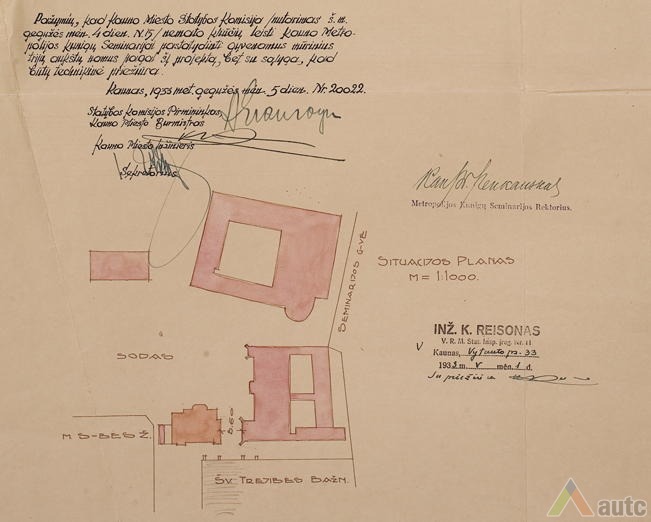 Pažymiu, kad Kauno Miesto Statybos Komisija /nutarimas š.m.
gegužės mėn. 4 dien. N.15/ nemato kliūčių, leisti Kauno Metro-
polijos Kunigų Seminarijai pastatydinti gyvenamus mūrinius
trijų aukštų namus pagal šį projektą, bet su sąlyga, kad
būtų techniškė priežiūra.
Kaunas, 1933 met. gegužės mėn. 5 dien. Nr 20022.
Statybos Komisijos Pirmininkas,
Kauno Miesto Burmistras
Kauno Miesto Inžinieris
Sekretorius
Metropolijos Kunigų Seminarijos Rektorius.
SITUACIJOS PLANAS
M = 1:1000.
SEMINARIJOS G-VĖ
INŽ. K. REISONAS
V. R. M. Stat. Insp. įreg. Nr. 11
V Kaunas, Vytauto pr. 33
1933 m. V mėn. 1 d.
SODAS
8.60
M S-BĖS Ž.
ŠV. TREJIBĖS BAŽN.
autc